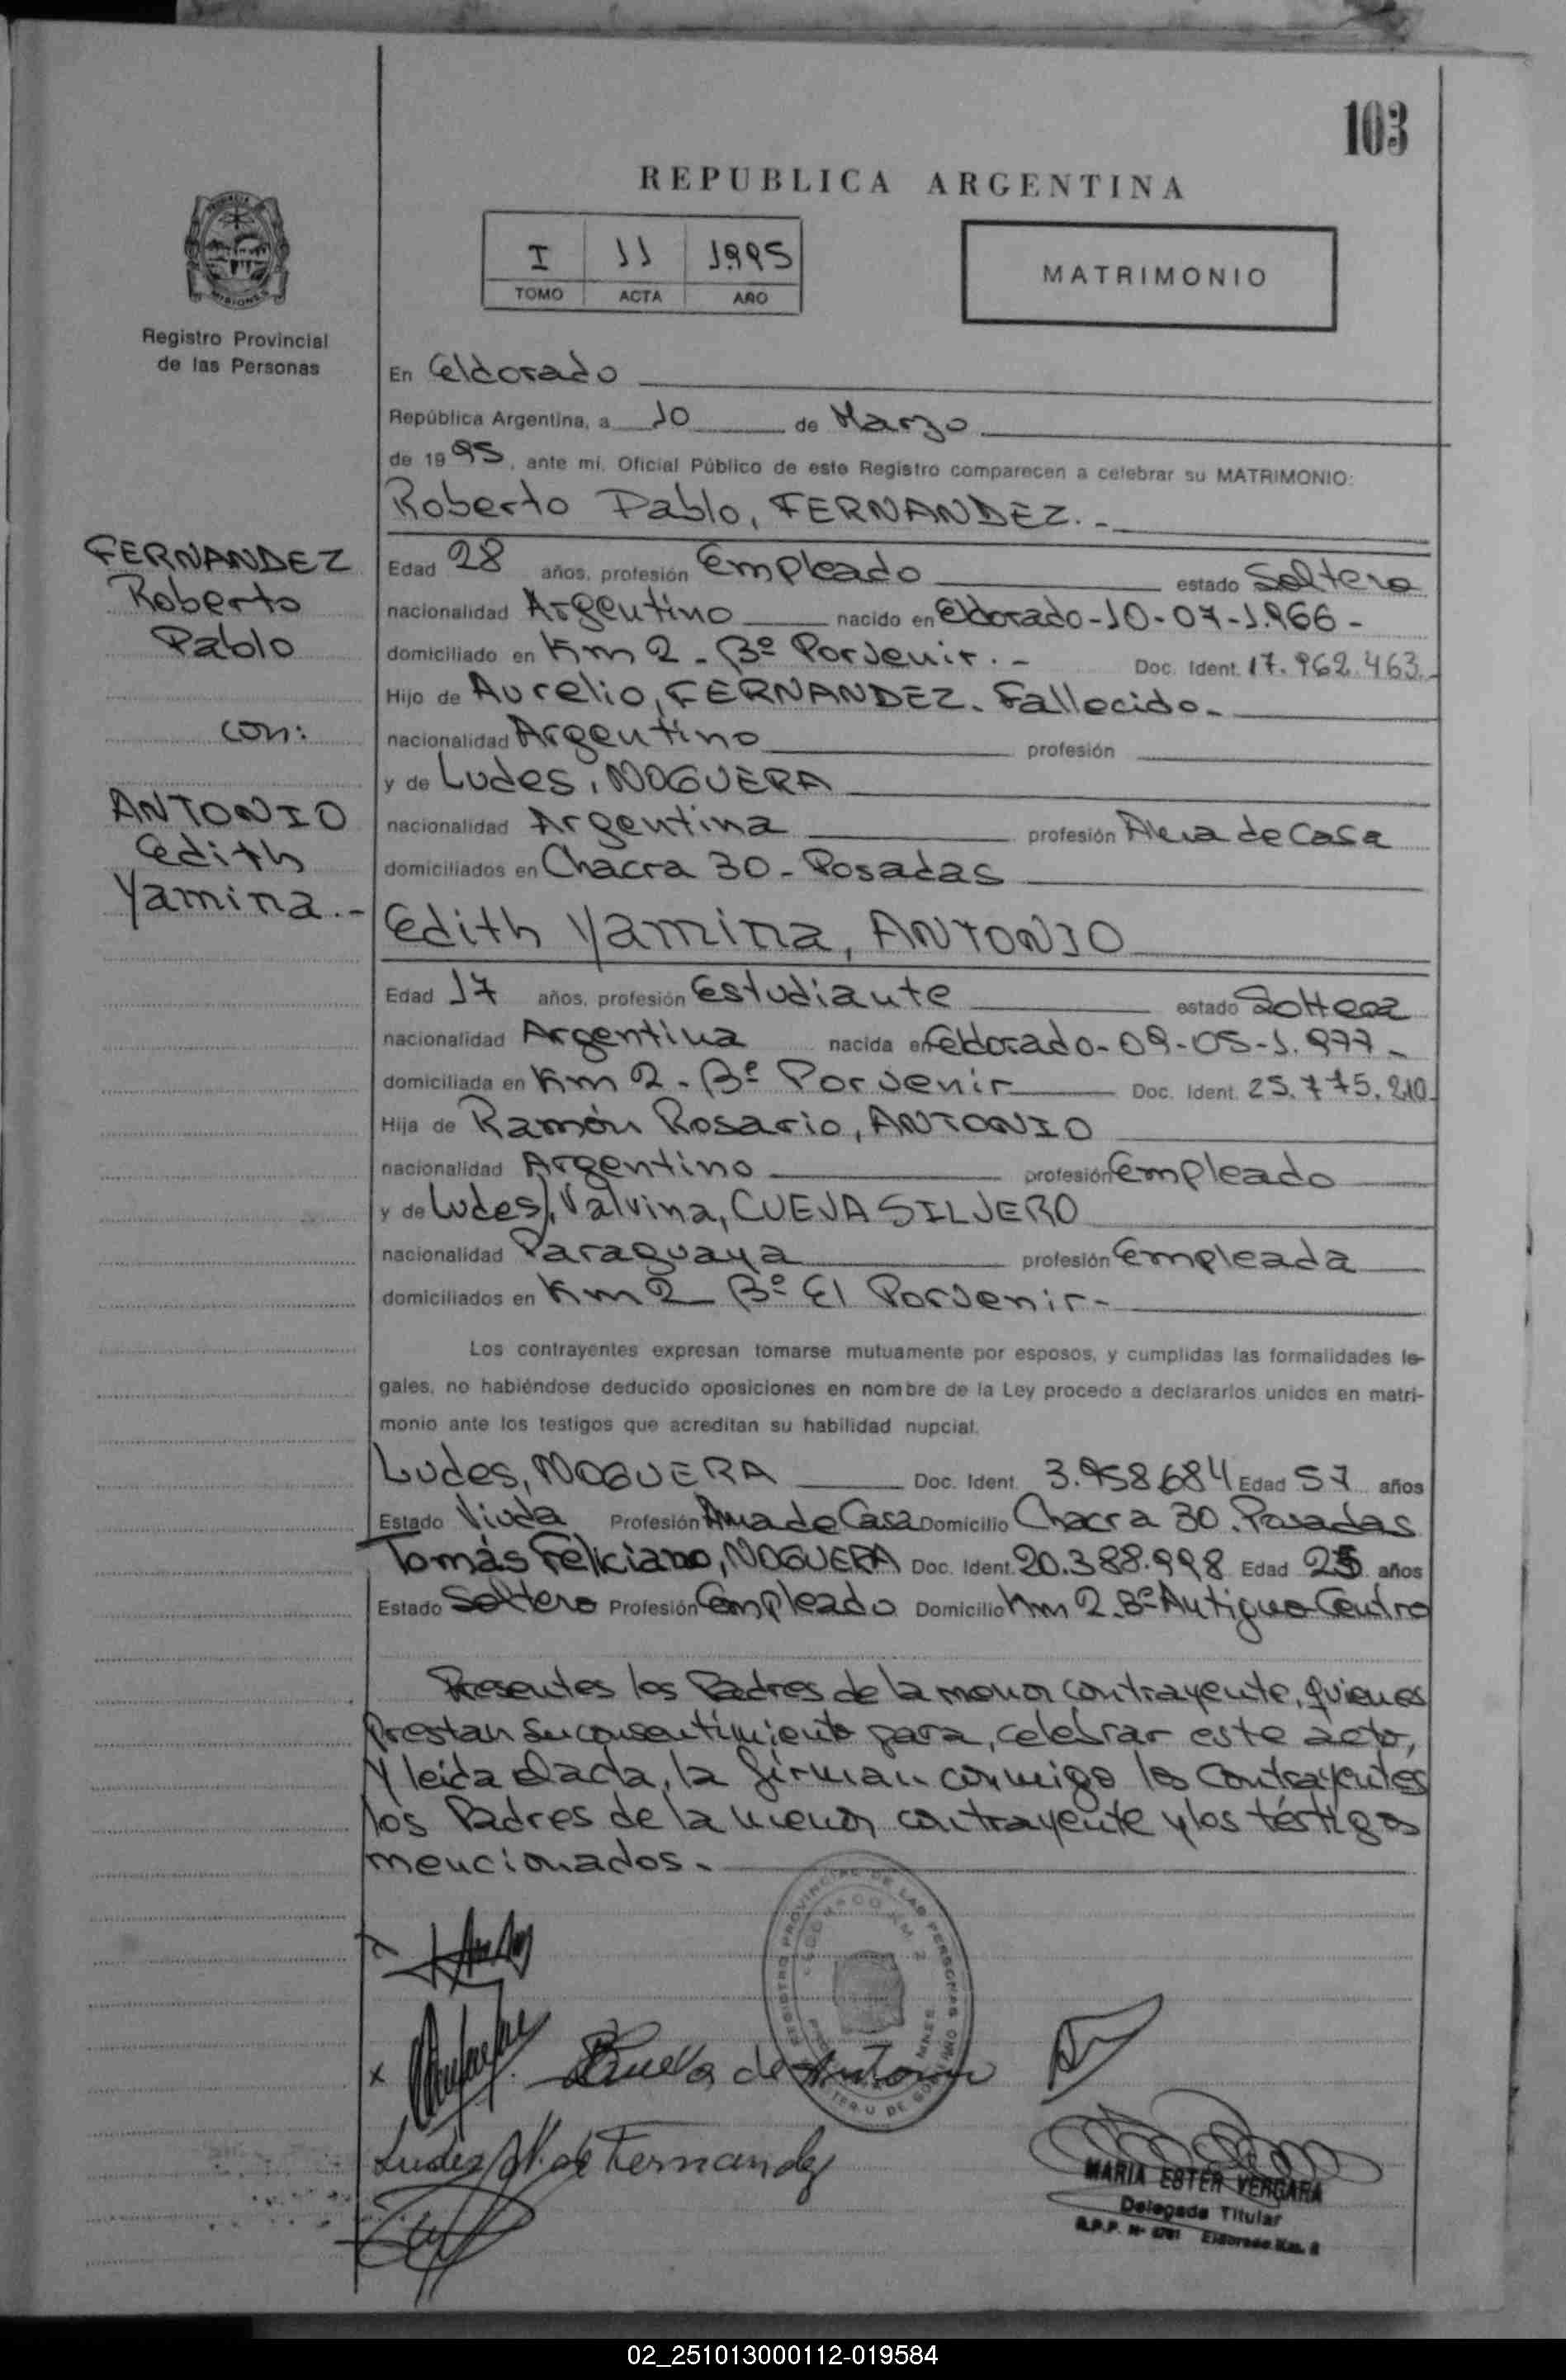 103
REPUBLICA ARGENTINA
I 11 1995
TOMO ACTA AÑO
MATRIMONIO
Registro Provincial
de las Personas
FERNANDEZ
Roberto
Pablo
con:
ANTONIO
Edith
Yamina.-
En Eldorado
República Argentina, a 10 de Marzo
de 1995, ante mí, Oficial Público de este Registro comparecen a celebrar su MATRIMONIO:
Roberto Pablo, FERNANDEZ.-
Edad 28 años, profesión Empleado estado Soltero
nacionalidad Argentino nacido en Eldorado-10-07-1.966-
domiciliado en Km 2 - Bº Porvenir.- Doc. Ident. 17.962.463.-
Hijo de Aurelio, FERNANDEZ. Fallecido-
nacionalidad Argentino profesión
y de Ludes, NOGUERA
nacionalidad Argentina profesión Ama de Casa
domiciliados en Chacra 30 - Posadas
Edith Yamina, ANTONIO
Edad 17 años, profesión Estudiante estado Soltera
nacionalidad Argentina nacida en Eldorado-09-05-1.977-
domiciliada en Km 2 - Bº Porvenir Doc. Ident. 25.775.210-
Hija de Ramón Rosario, ANTONIO
nacionalidad Argentino profesión Empleado
y de Ludes, Valvina, CUEVA SILVERO
nacionalidad Paraguaya profesión Empleada
domiciliados en Km 2 Bº El Porvenir-
Los contrayentes expresan tomarse mutuamente por esposos, y cumplidas las formalidades le-
gales, no habiéndose deducido oposiciones en nombre de la Ley procedo a declararlos unidos en matri-
monio ante los testigos que acreditan su habilidad nupcial.
Ludes, NOGUERA Doc. Ident. 3.958.684 Edad 57 años
Estado Viuda Profesión Ama de Casa Domicilio Chacra 30. Posadas
Tomás Feliciano, NOGUERA Doc. Ident. 20.388.998 Edad 25 años
Estado Soltero Profesión Empleado Domicilio Km 2. Bº Antiguo Centro
Presentes los Padres de la menor contrayente, quienes
Prestan su consentimiento para, celebrar este acto,
Y leida el acta, la firman conmigo los Contrayentes
los Padres de la menor contrayente y los téstigos
mencionados.-
REGISTRO PROVINCIAL DE LAS PERSONAS
Cueva de Antonio
Ludes N. de Fernandez
MARIA ESTER VERGARA
Delegada Titular
R.P.P. Nº Eldorado Km. 2
02_251013000112-019584